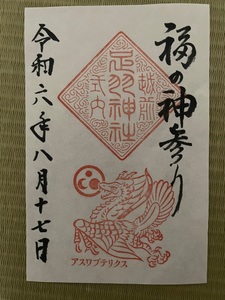 福の神参り
越前
足羽神社
式内
令和六年八月十七日
アスワプテリクス